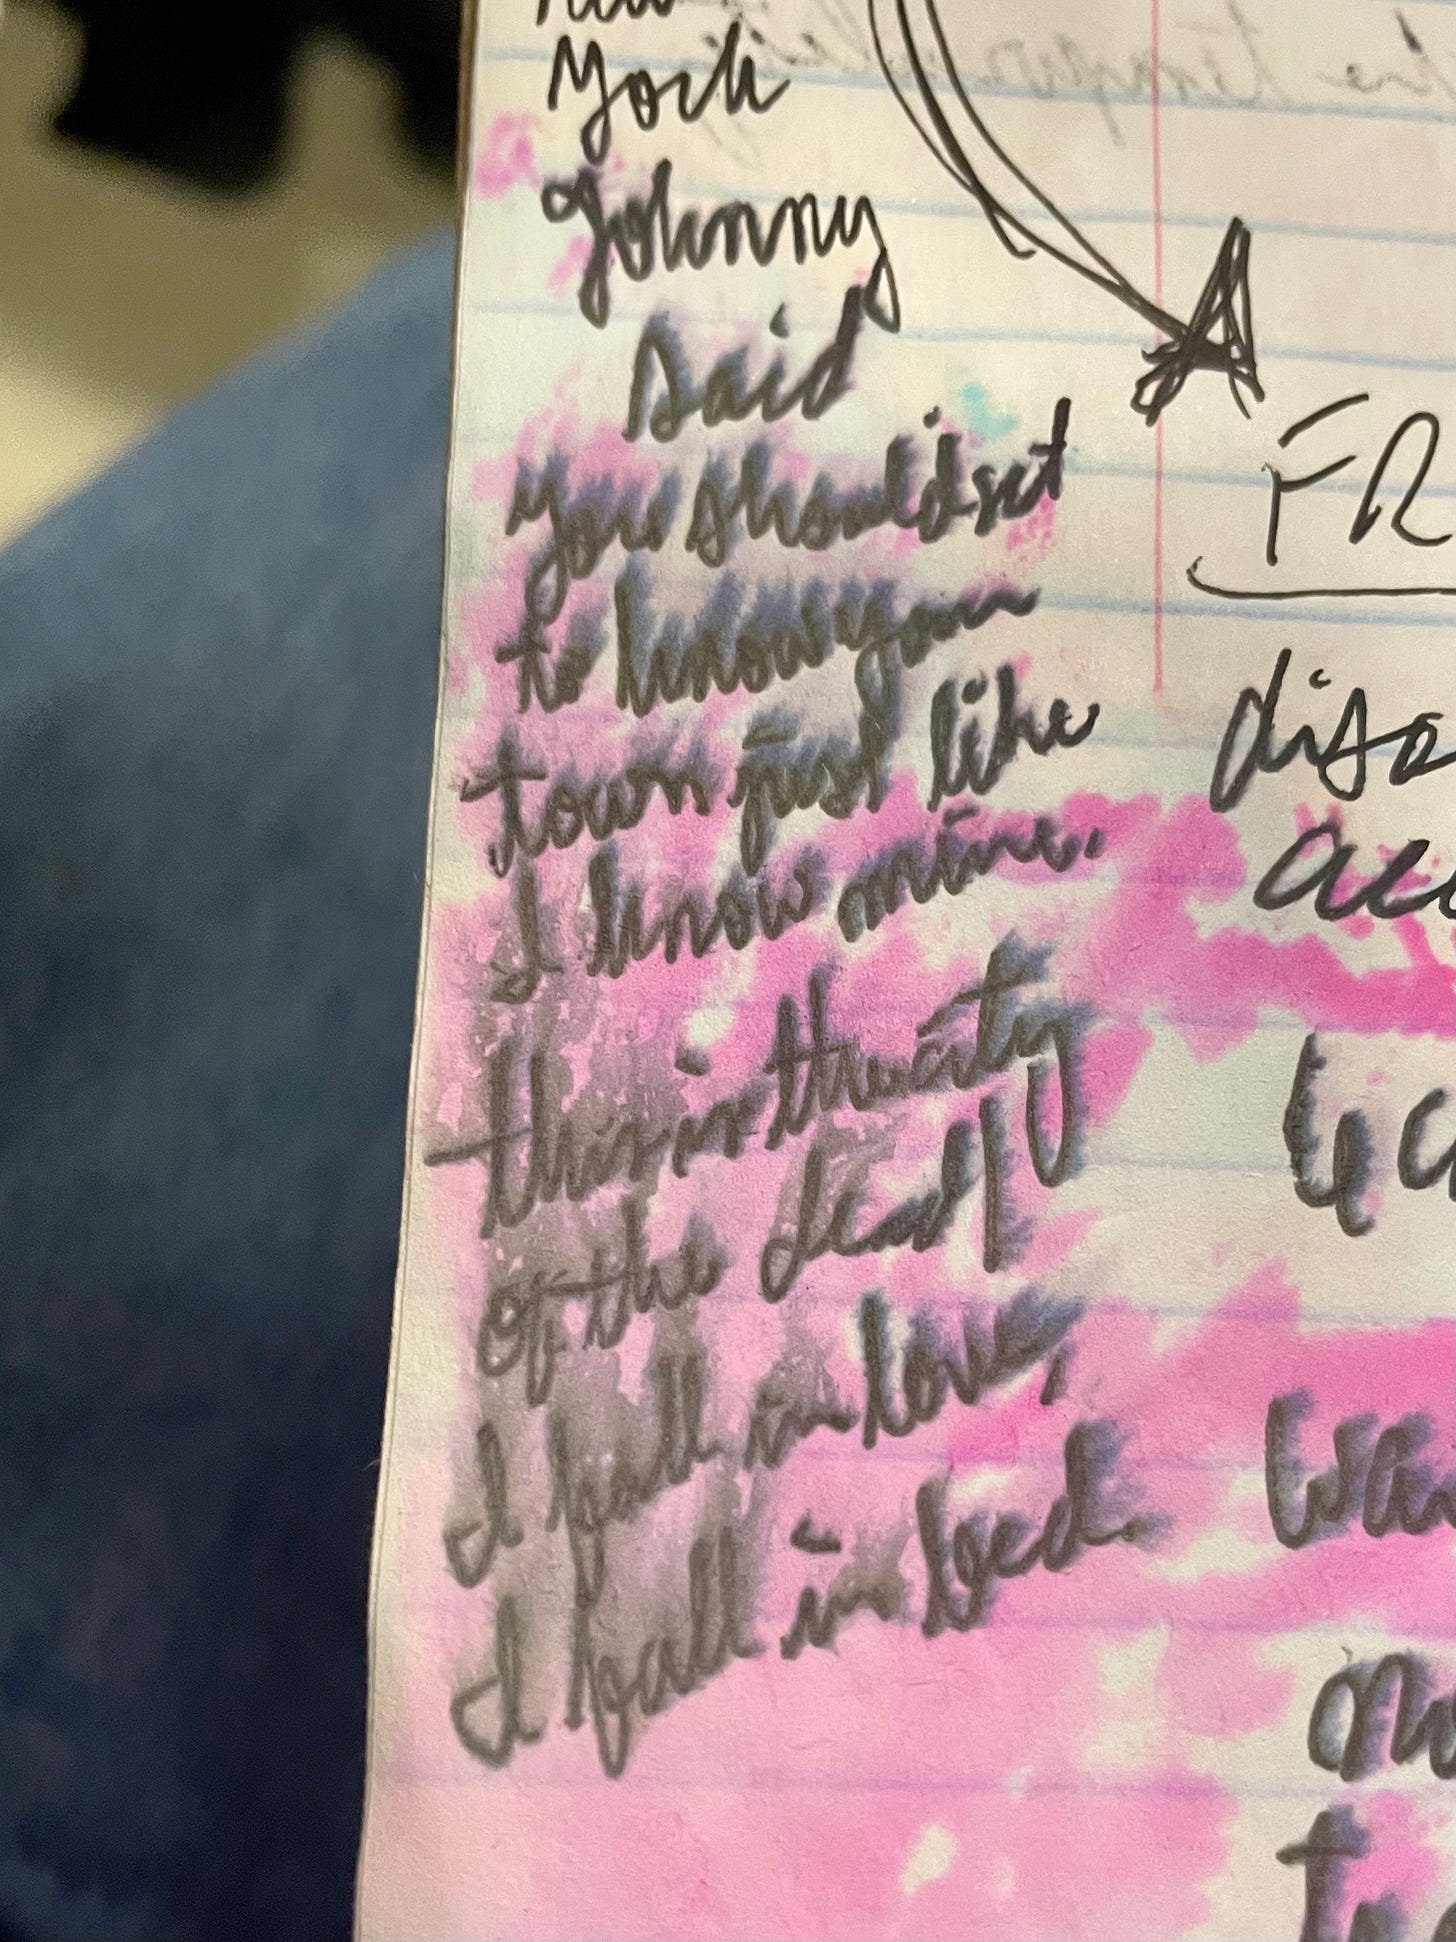 York
Johnny
said
you should set
to know your
town just like
I know mine.
this in the city
of the dead
I fall in love,
I fall in bed.
FR